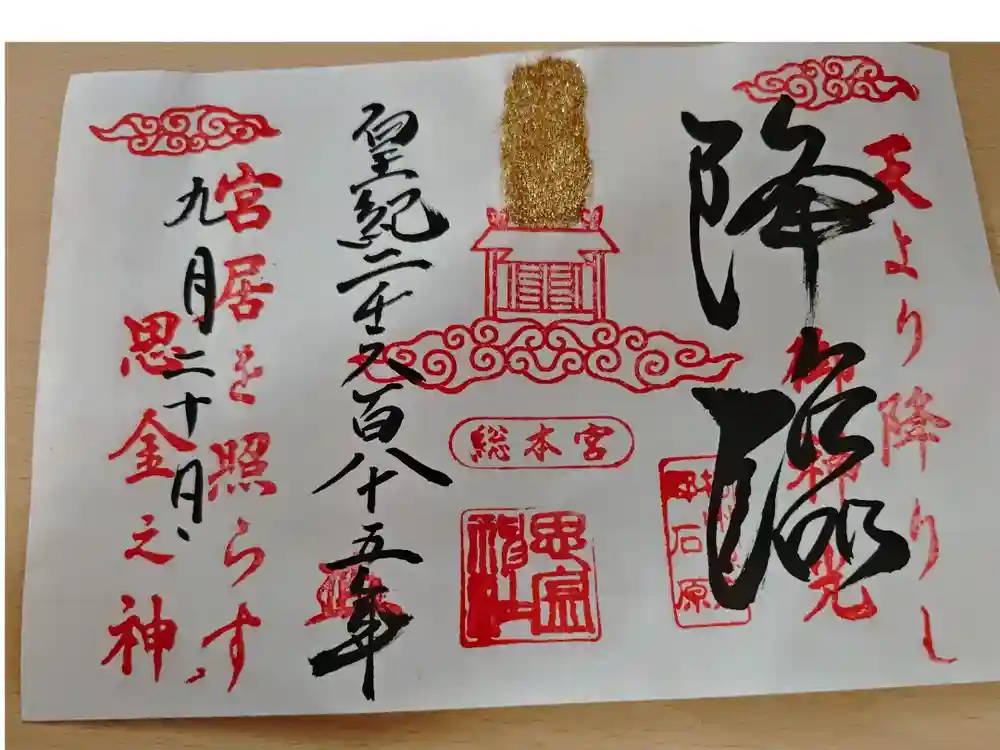 天より降りし
降臨
御神光
総本宮
思金神社
皇紀二千六百八十五年
宮居を照らす
九月二十日
思金之神